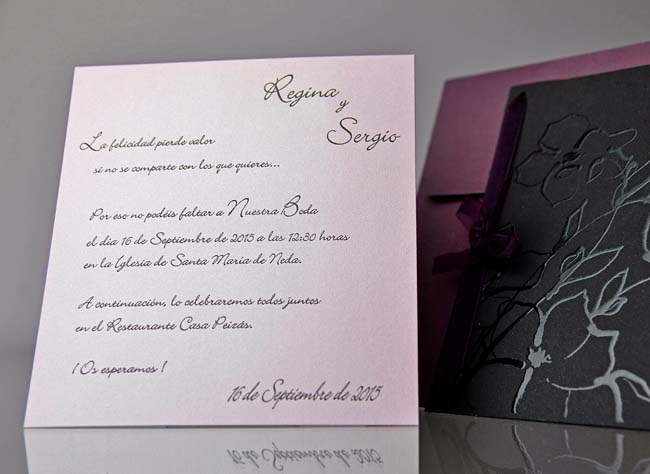 Regina
y
Sergio
La felicidad pierde valor
si no se comparte con los que quieres...
Por eso no podéis faltar a Nuestra Boda
el día 16 de Septiembre de 2015 a las 12:30 horas
en la Iglesia de Santa Maria de Neda.
A continuación, lo celebraremos todos juntos
en el Restaurante Casa Peizás.
¡ Os esperamos !
16 de Septiembre de 2015